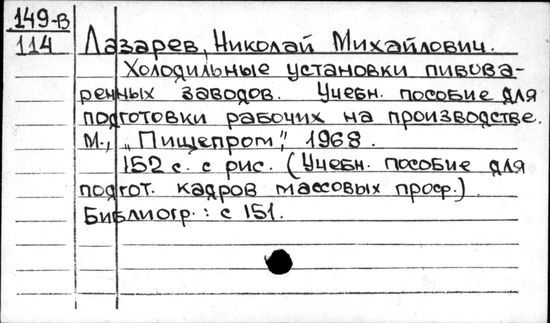 149-В
114 Лазарев, Николай Михайлович.
Холодильные установки пивова-
ренных заводов. Учебн. пособие для
подготовки рабочих на производстве.
М., „Пищепром", 1968.
152 с. с рис. (Учебн. пособие для
подгот. кадров массовых проф.)
Библиогр.: с 151.